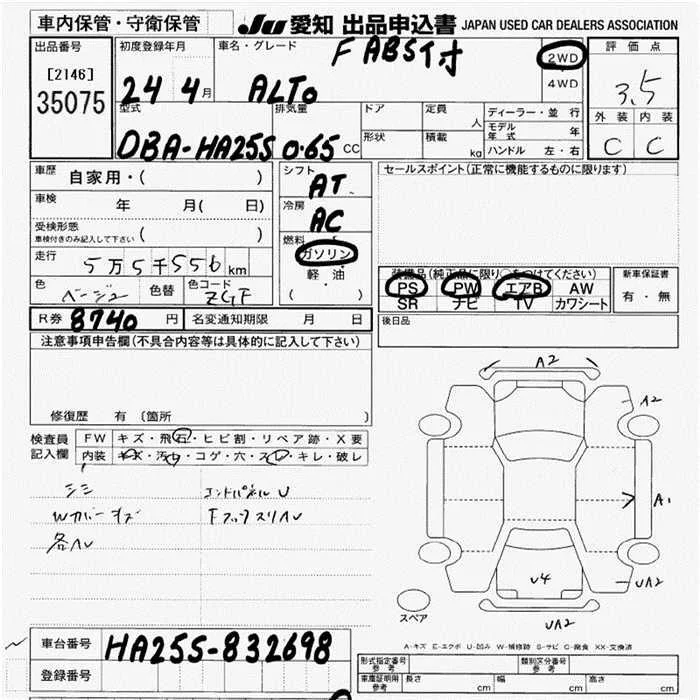 車内保管・守衛保管
JU 愛知 出品申込書 JAPAN USED CAR DEALERS ASSOCIATION
出品番号
[2146]
35075
初度登録年月
24 4月
車名・グレード
F ABS付
ALTO
2WD
4WD
評価点
3.5
外装 内装
C C
型式
DBA-HA25S
排気量
0.65 CC
ドア
形状
定員 人
積載 kg
ディーラー・並行
モデル年式 年
ハンドル 左・右
車歴 自家用・( )
車検 年 月( 日)
受検形態
車検付きのみ記入して下さい ( )
走行 5万5千556km
色 ベージュ 色替 色コード ZGF
シフト AT
冷房 AC
燃料
ガソリン
軽油
( ・ )
セールスポイント(正常に機能するものに限ります)
装備品(純正品に限り○をつけてください)
PS PW エアB AW
SR ナビ TV カワシート
新車保証書
有・無
R券 8740 円 名変通知期限 月 日
後日品
注意事項申告欄(不具合内容等は具体的に記入して下さい)
修復歴 有 〔箇所 〕
検査員記入欄
FW キズ・飛石・ヒビ割・リペア跡・X要
内装 キズ・汚れ・コゲ・穴・スレ・キレ・破レ
シミ
エンドパネルU
Wカバーキズ
各ハ
A2
A2
A1
U4
UA2
UA2
スペア
A-キズ E-エクボ U-凹み W-補修跡 S-サビ C-腐食 XX-交換済
車台番号 HA25S-832698
登録番号
形式指定番号 参考
類別区分番号 参考
車庫証明用 参考 長さ cm 幅 cm 高さ cm